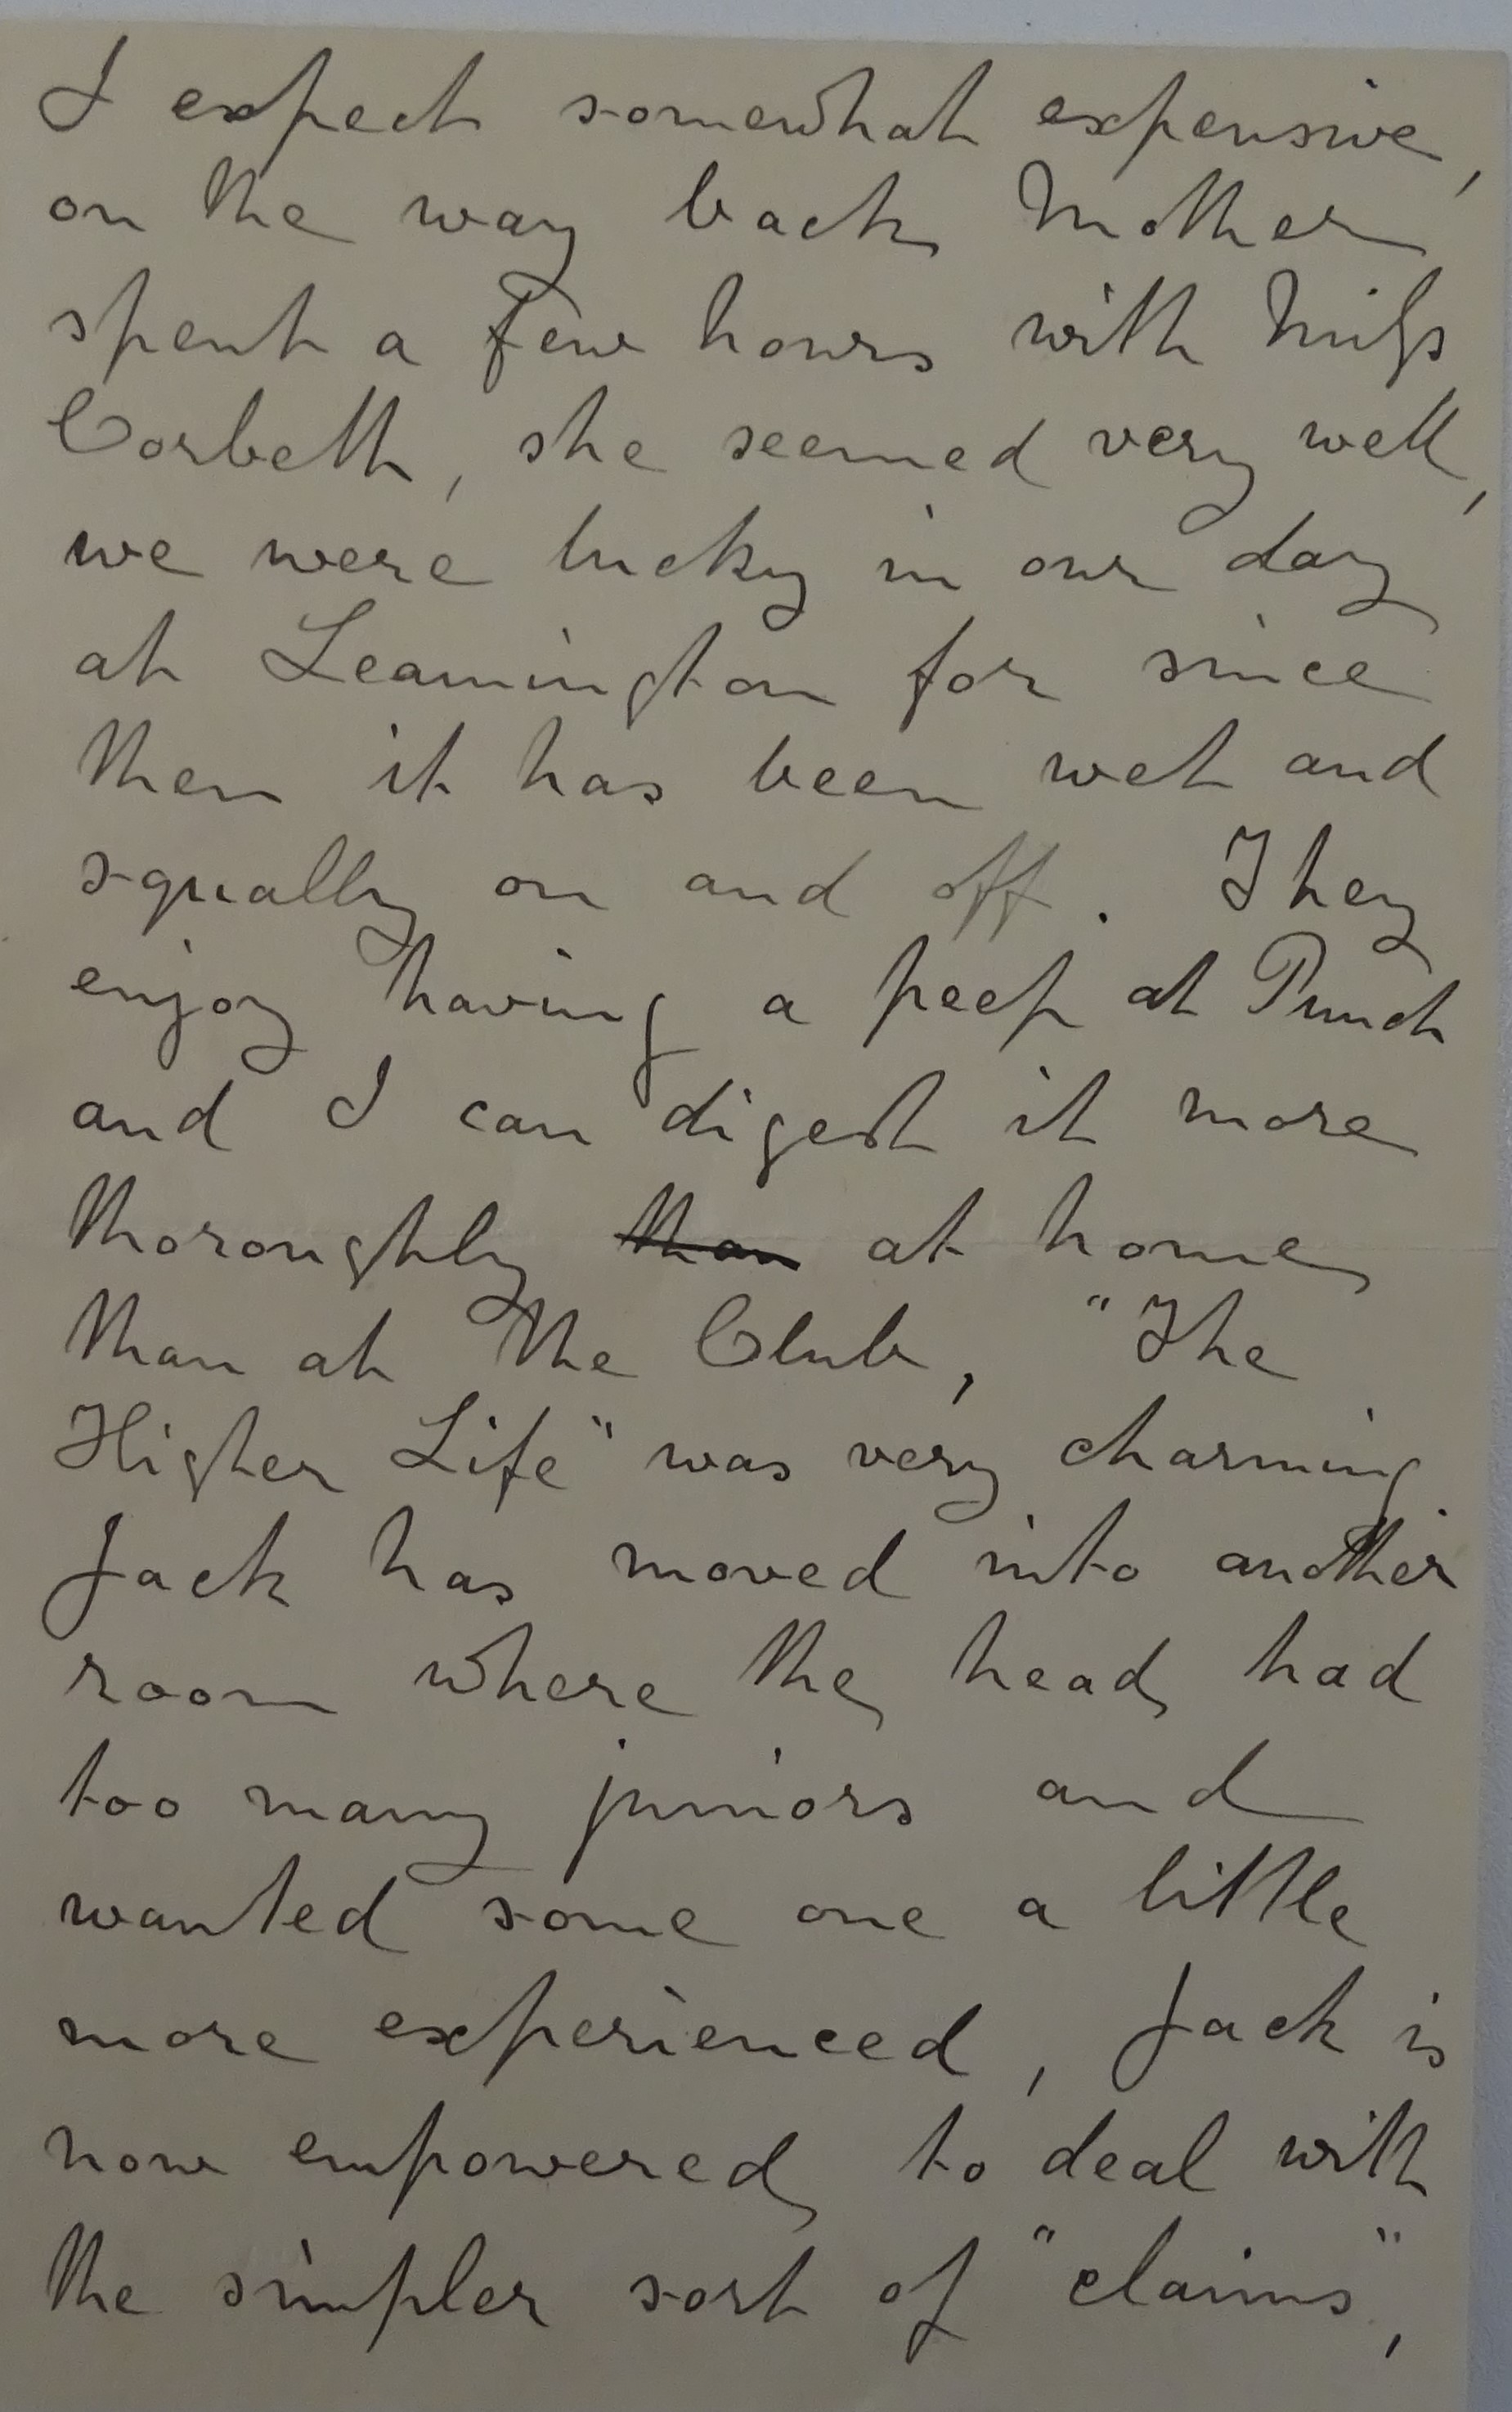 I expect somewhat expensive,
on the way back Mother
spent a few hours with Miss
Corbett, she seemed very well,
we were lucky in our day
at Leamington for since
then it has been wet and
squally on and off. They
enjoy having a peep at Punch
and I can digest it more
thoroughly than at home
than at the Club, "The
Higher Life" was very charming
Jack has moved into another
room where the head had
too many juniors and
wanted some one a little
more experienced, Jack is
now empowered to deal with
the simpler sort of "claims",